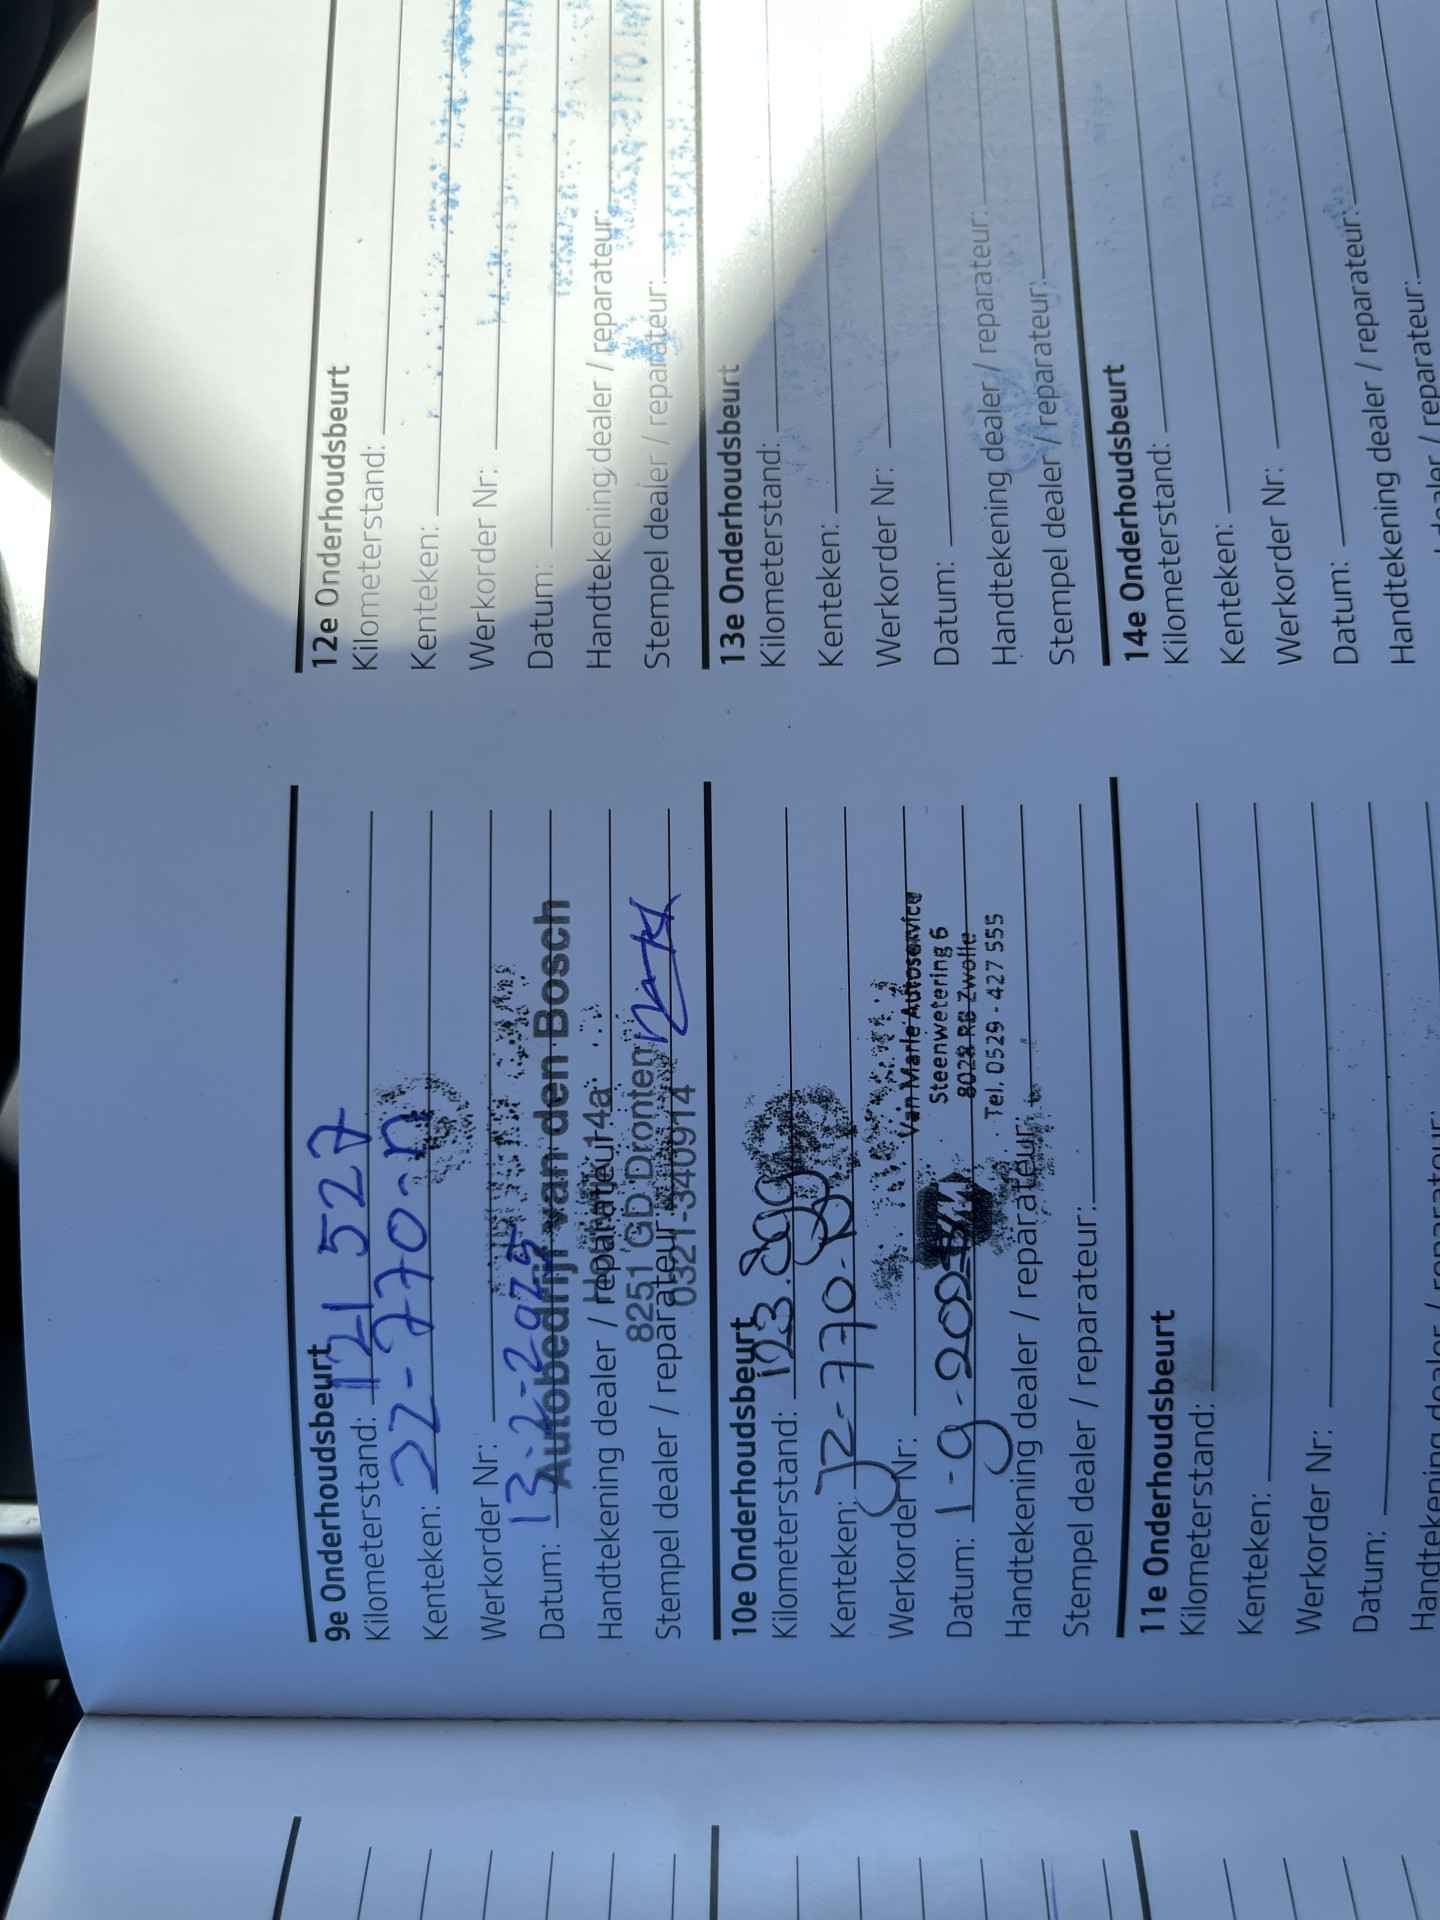 9e Onderhoudsbeurt
Kilometerstand: 121 527
Kenteken:
Werkorder Nr:
Datum: 13-2-2025
Autobedrijf van den Bosch
Handtekening dealer / reparateur 14a
8251 GD Dronten
Stempel dealer / reparateur:
0321-340914
10e Onderhoudsbeurt
Kilometerstand: 123.899
Kenteken:
Werkorder Nr:
Van Marle Autoservice
Steenwetering 6
Datum: 1-9-2025
8028 RB Zwolle
Tel. 0529 - 427 555
Handtekening dealer / reparateur:
Stempel dealer / reparateur:
11e Onderhoudsbeurt
Kilometerstand:
Kenteken:
Werkorder Nr:
Datum:
12e Onderhoudsbeurt
Kilometerstand:
Kenteken:
Werkorder Nr:
Datum:
Handtekening dealer / reparateur:
Stempel dealer / reparateur:
13e Onderhoudsbeurt
Kilometerstand:
Kenteken:
Werkorder Nr:
Datum:
Handtekening dealer / reparateur:
Stempel dealer / reparateur:
14e Onderhoudsbeurt
Kilometerstand:
Kenteken:
Werkorder Nr:
Datum:
Handtekening dealer / reparateur: